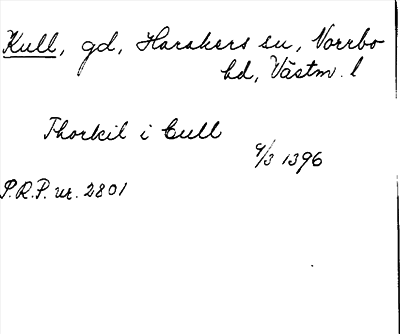 Kull, gd, Harakers sn, Norrbo
hd, Västm. l
Thorkil i Cull
9/3 1396
P.R.P. nr. 2801